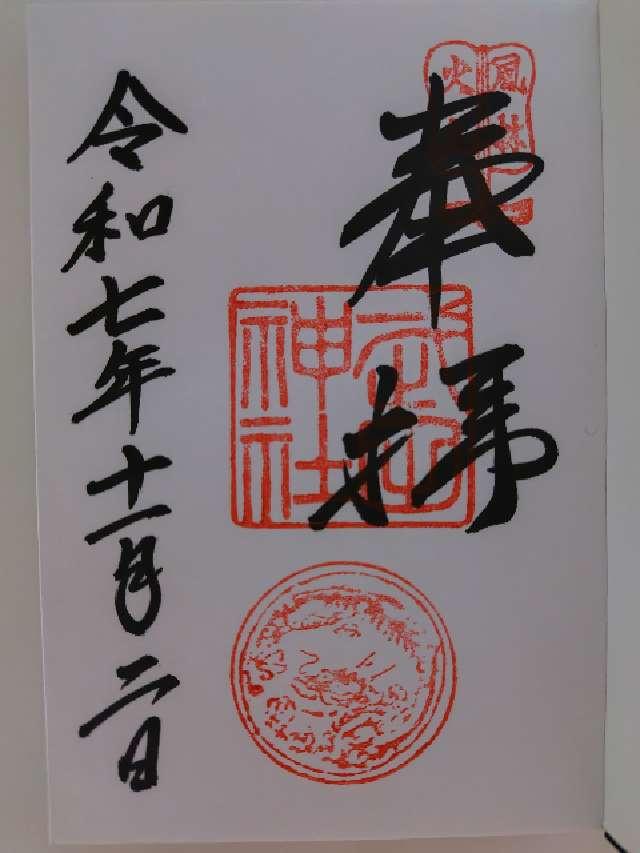 風林火山
奉拝
武田神社
令和七年十一月二日